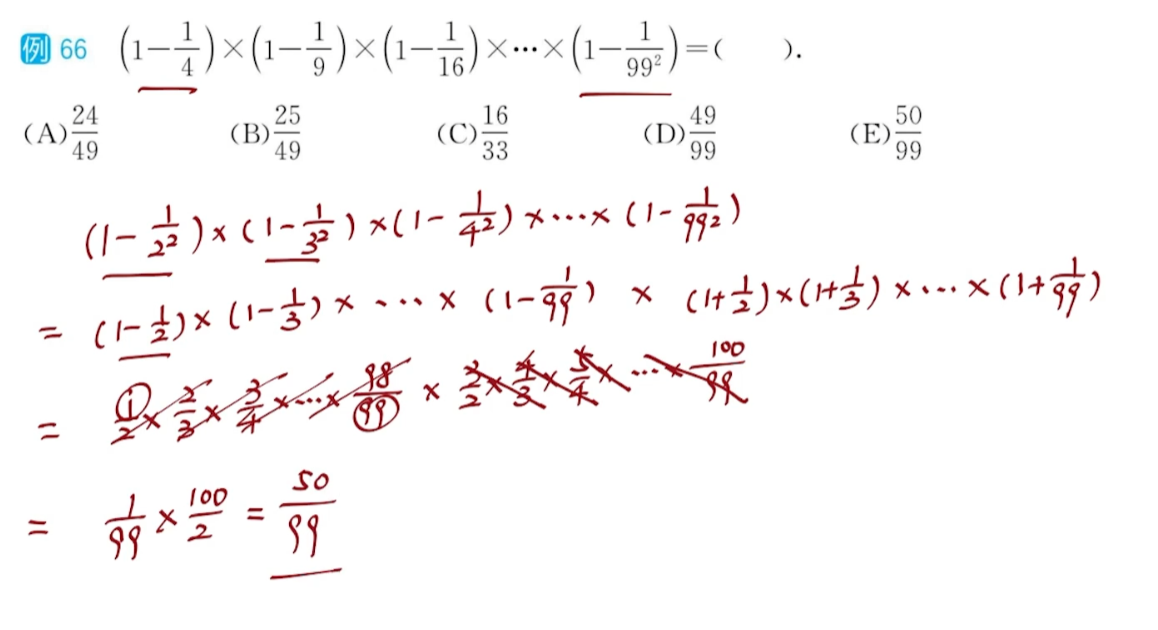 例 66 (1-1/4)×(1-1/9)×(1-1/16)×···×(1-1/99²)=(    ).
(A)24/49 (B)25/49 (C)16/33 (D)49/99 (E)50/99
(1-1/2²)×(1-1/3²)×(1-1/4²)×···×(1-1/99²)
=(1-1/2)×(1-1/3)×···×(1-1/99)×(1+1/2)×(1+1/3)×···×(1+1/99)
=1/2×2/3×3/4×···×98/99×3/2×4/3×5/4×···×100/99
=1/99×100/2=50/99